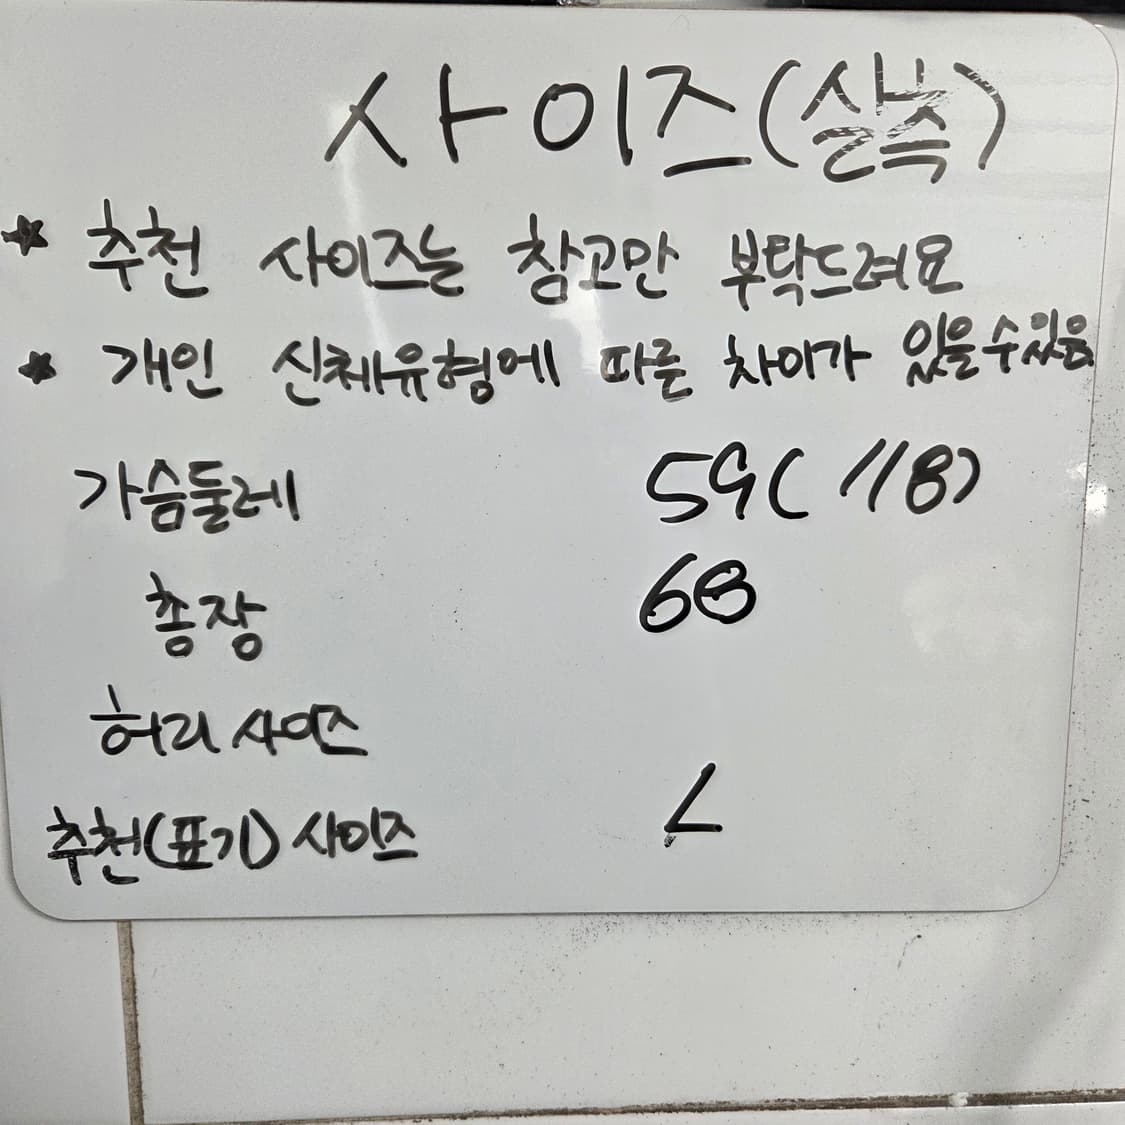 사이즈(실측)
★ 추천 사이즈는 참고만 부탁드려요
★ 개인 신체유형에 따른 차이가 있을수있음
가슴둘레 59( 118)
총장 68
허리 사이즈
추천(표기) 사이즈 L